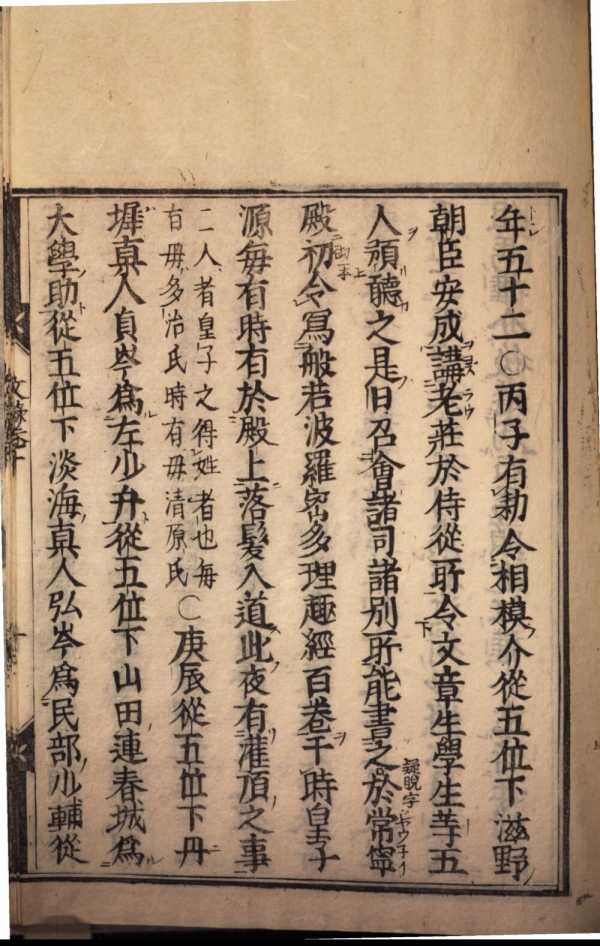 年五十二〇丙子有勅令相模介從五位下滋野
朝臣安成講老莊於侍從所令文章生學生等五
人預聽之是日召會諸司諸別所能書之於常寧
殿初令寫般若波羅密多理趣經百卷于時皇子
源毎有時有於殿上落髮入道此夜有灌頂之事
二人者皇子之得姓者也毎
有母多治氏時有母清原氏
〇庚辰從五位下丹
墀真人貞岑爲左少弁從五位下山田連春城爲
大學助從五位下淡海真人弘岑爲民部少輔從